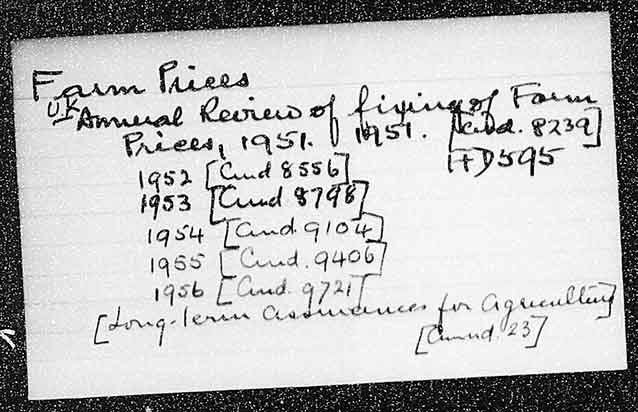 Farm Prices
UK Annual Review of fixing of Farm
Prices, 1951. 1951. [Cmd. 8239]
HD595
1952 [Cmd 8556]
1953 [Cmd 8798]
1954 [Cmd. 9104]
1955 [Cmd. 9406]
1956 [Cmd. 9721]
[Long-term assurances for agriculture]
[Cmnd. 23]